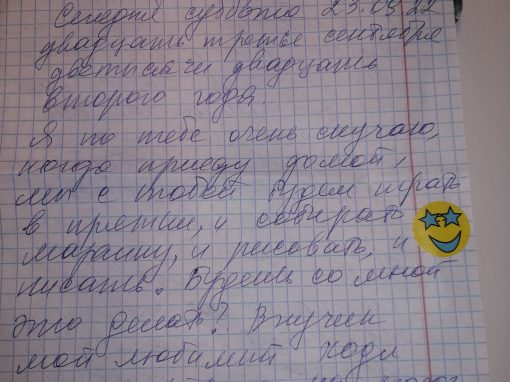 Сегодня суббота 23.09.22
двадцать третье сентября
две тысячи двадцать
второго года.
Я по тебе очень скучаю,
когда приеду домой,
мы с тобой будем играть
в прятки, и собирать
и рисовать, и
писать. Будешь со мной
это делать? Внучек
мой любимий